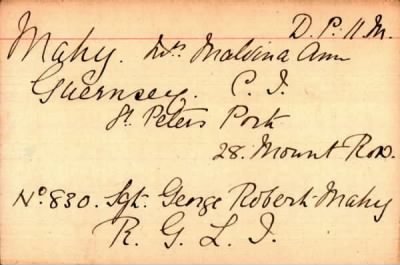 D. P. 11 M.
Mahy. Mrs Malvina Ann
Guernsey. C. I.
St. Peters Port
28. Mount Row.
No. 830. Sgt. George Robert Mahy
R. G. L. I.